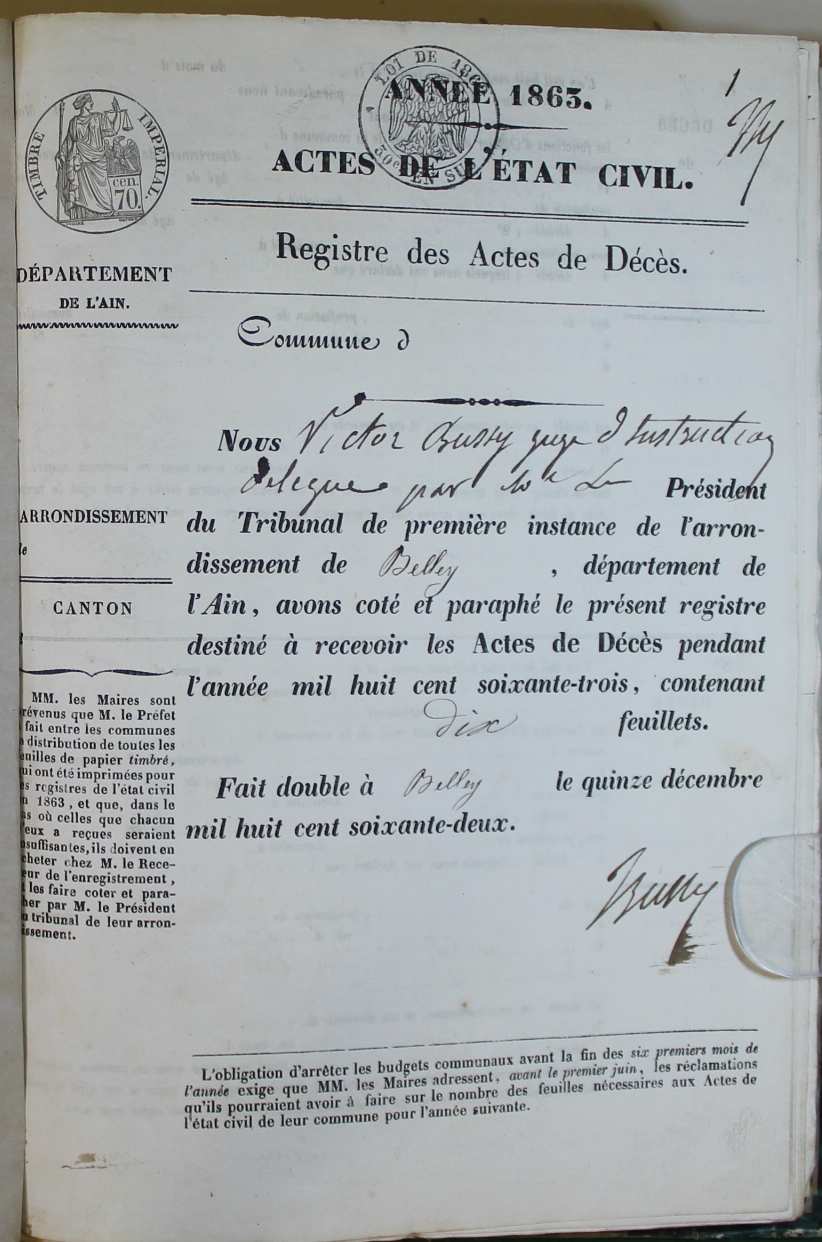 LOI DE 186
30c EN SU
ANNÉE 1863.
1
ACTES DE L'ÉTAT CIVIL.
TIMBRE IMPERIAL.
cen.
70.
Registre des Actes de Décès.
DÉPARTEMENT
DE L'AIN.
Commune d
Nous Victor Bussy juge d'Instruction
délégué par Mr Le Président
du Tribunal de première instance de l'arron-
dissement de Belley , département de
l'Ain, avons coté et paraphé le présent registre
destiné à recevoir les Actes de Décès pendant
l'année mil huit cent soixante-trois, contenant
dix feuillets.
Fait double à Belley le quinze décembre
mil huit cent soixante-deux.
Bussy
ARRONDISSEMENT
de
CANTON
MM. les Maires sont
révenus que M. le Préfet
fait entre les communes
distribution de toutes les
euilles de papier timbré,
ui ont été imprimées pour
es registres de l'état civil
n 1863, et que, dans le
as où celles que chacun
'eux a reçues seraient
nsuffisantes, ils doivent en
cheter chez M. le Rece-
eur de l'enregistrement,
les faire coter et para-
her par M. le Président
u tribunal de leur arron-
issement.
L'obligation d'arrêter les budgets communaux avant la fin des six premiers mois de
l'année exige que MM. les Maires adressent, avant le premier juin, les réclamations
qu'ils pourraient avoir à faire sur le nombre des feuilles nécessaires aux Actes de
l'état civil de leur commune pour l'année suivante.